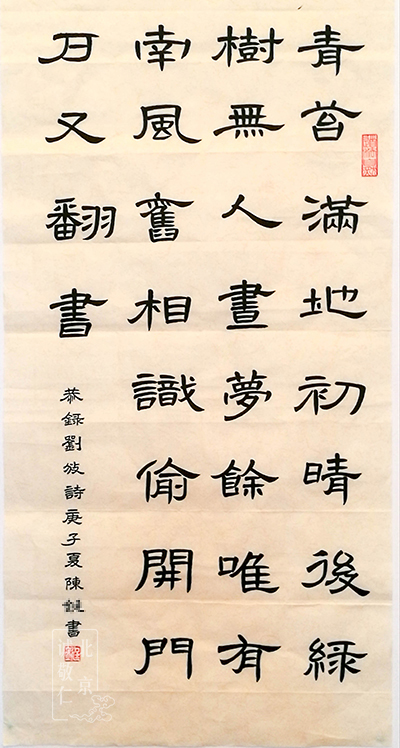 青苔滿地初晴後綠
樹無人晝夢餘唯有
南風舊相識偷開門
戶又翻書
恭錄劉攽詩庚子夏陳書
北京
敬仁